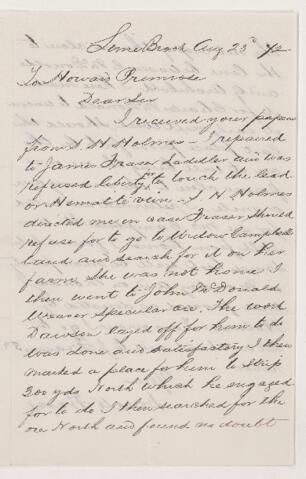 Lime Brook Aug 23rd /72
To Howard Primrose
Dear Sir
I received your papers
from S. H Holmes – I repaired
to James Fraser Saddler and was
refused liberty to touch the lead
or Hematite vein – S H Holmes
directed me in case Fraser should
refuse for to go to Widow Campbells
land and search for it on her
farm. She was not home I
then went to John McDonald
Weaver Specular ore. The work
Dawson layed off for him to do
was done and satisfactory I then
marked a place for him to strip
200 yds North which he engaged
for to do I then searched for the
ore North and found no doubt